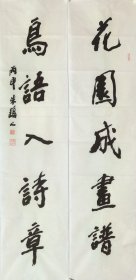 花園成畫譜
鳥語入詩章